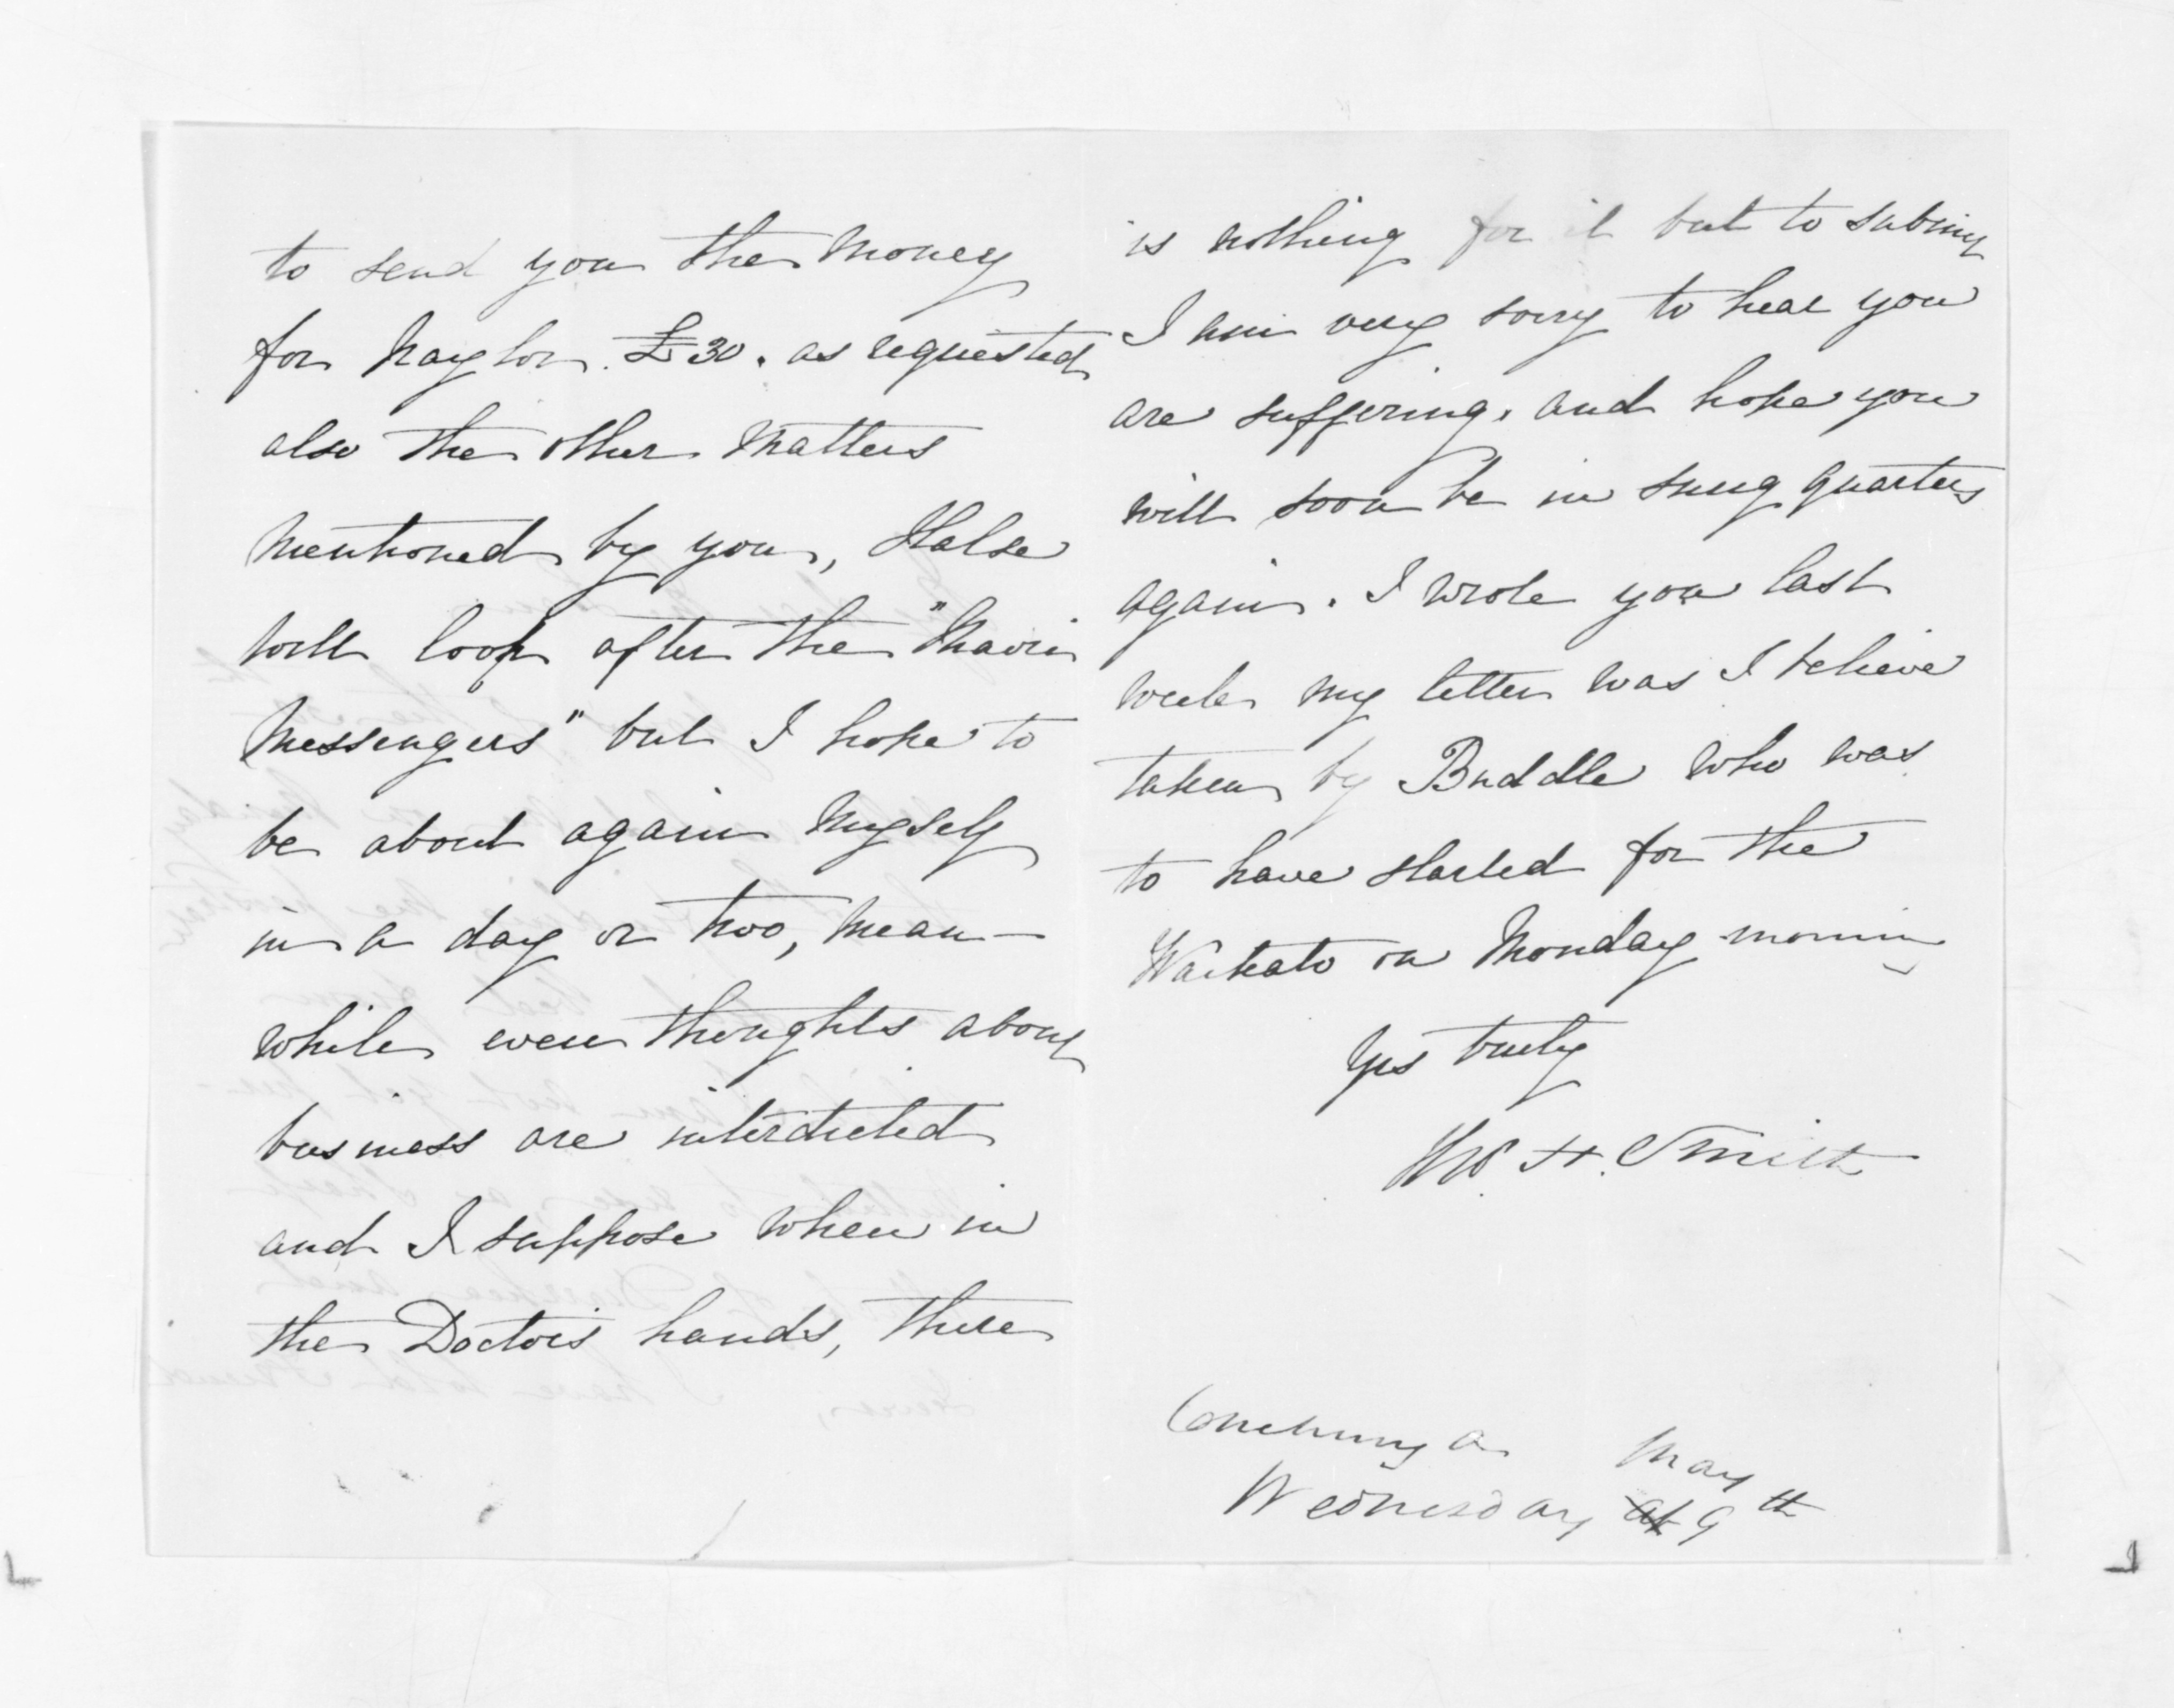 to send you the money
for Naylor. £30. as requested
also the other matters
mentioned by you, Halse
will look after the "Maori
Messengers" but I hope to
be about again myself
in a day or two, mean-
while even thoughts about
business are interdicted
and I suppose when in
the Doctors hands, there
is nothing for it but to submit
I am very sorry to hear you
are suffering. and hope you
will soon be in snug quarters
again. I wrote you last
week my letter was I believe
taken by Buddle who was
to have started for the
Waikato on Monday morning
Yrs truly
Wm. H. Smith
May
Wednesday 9th